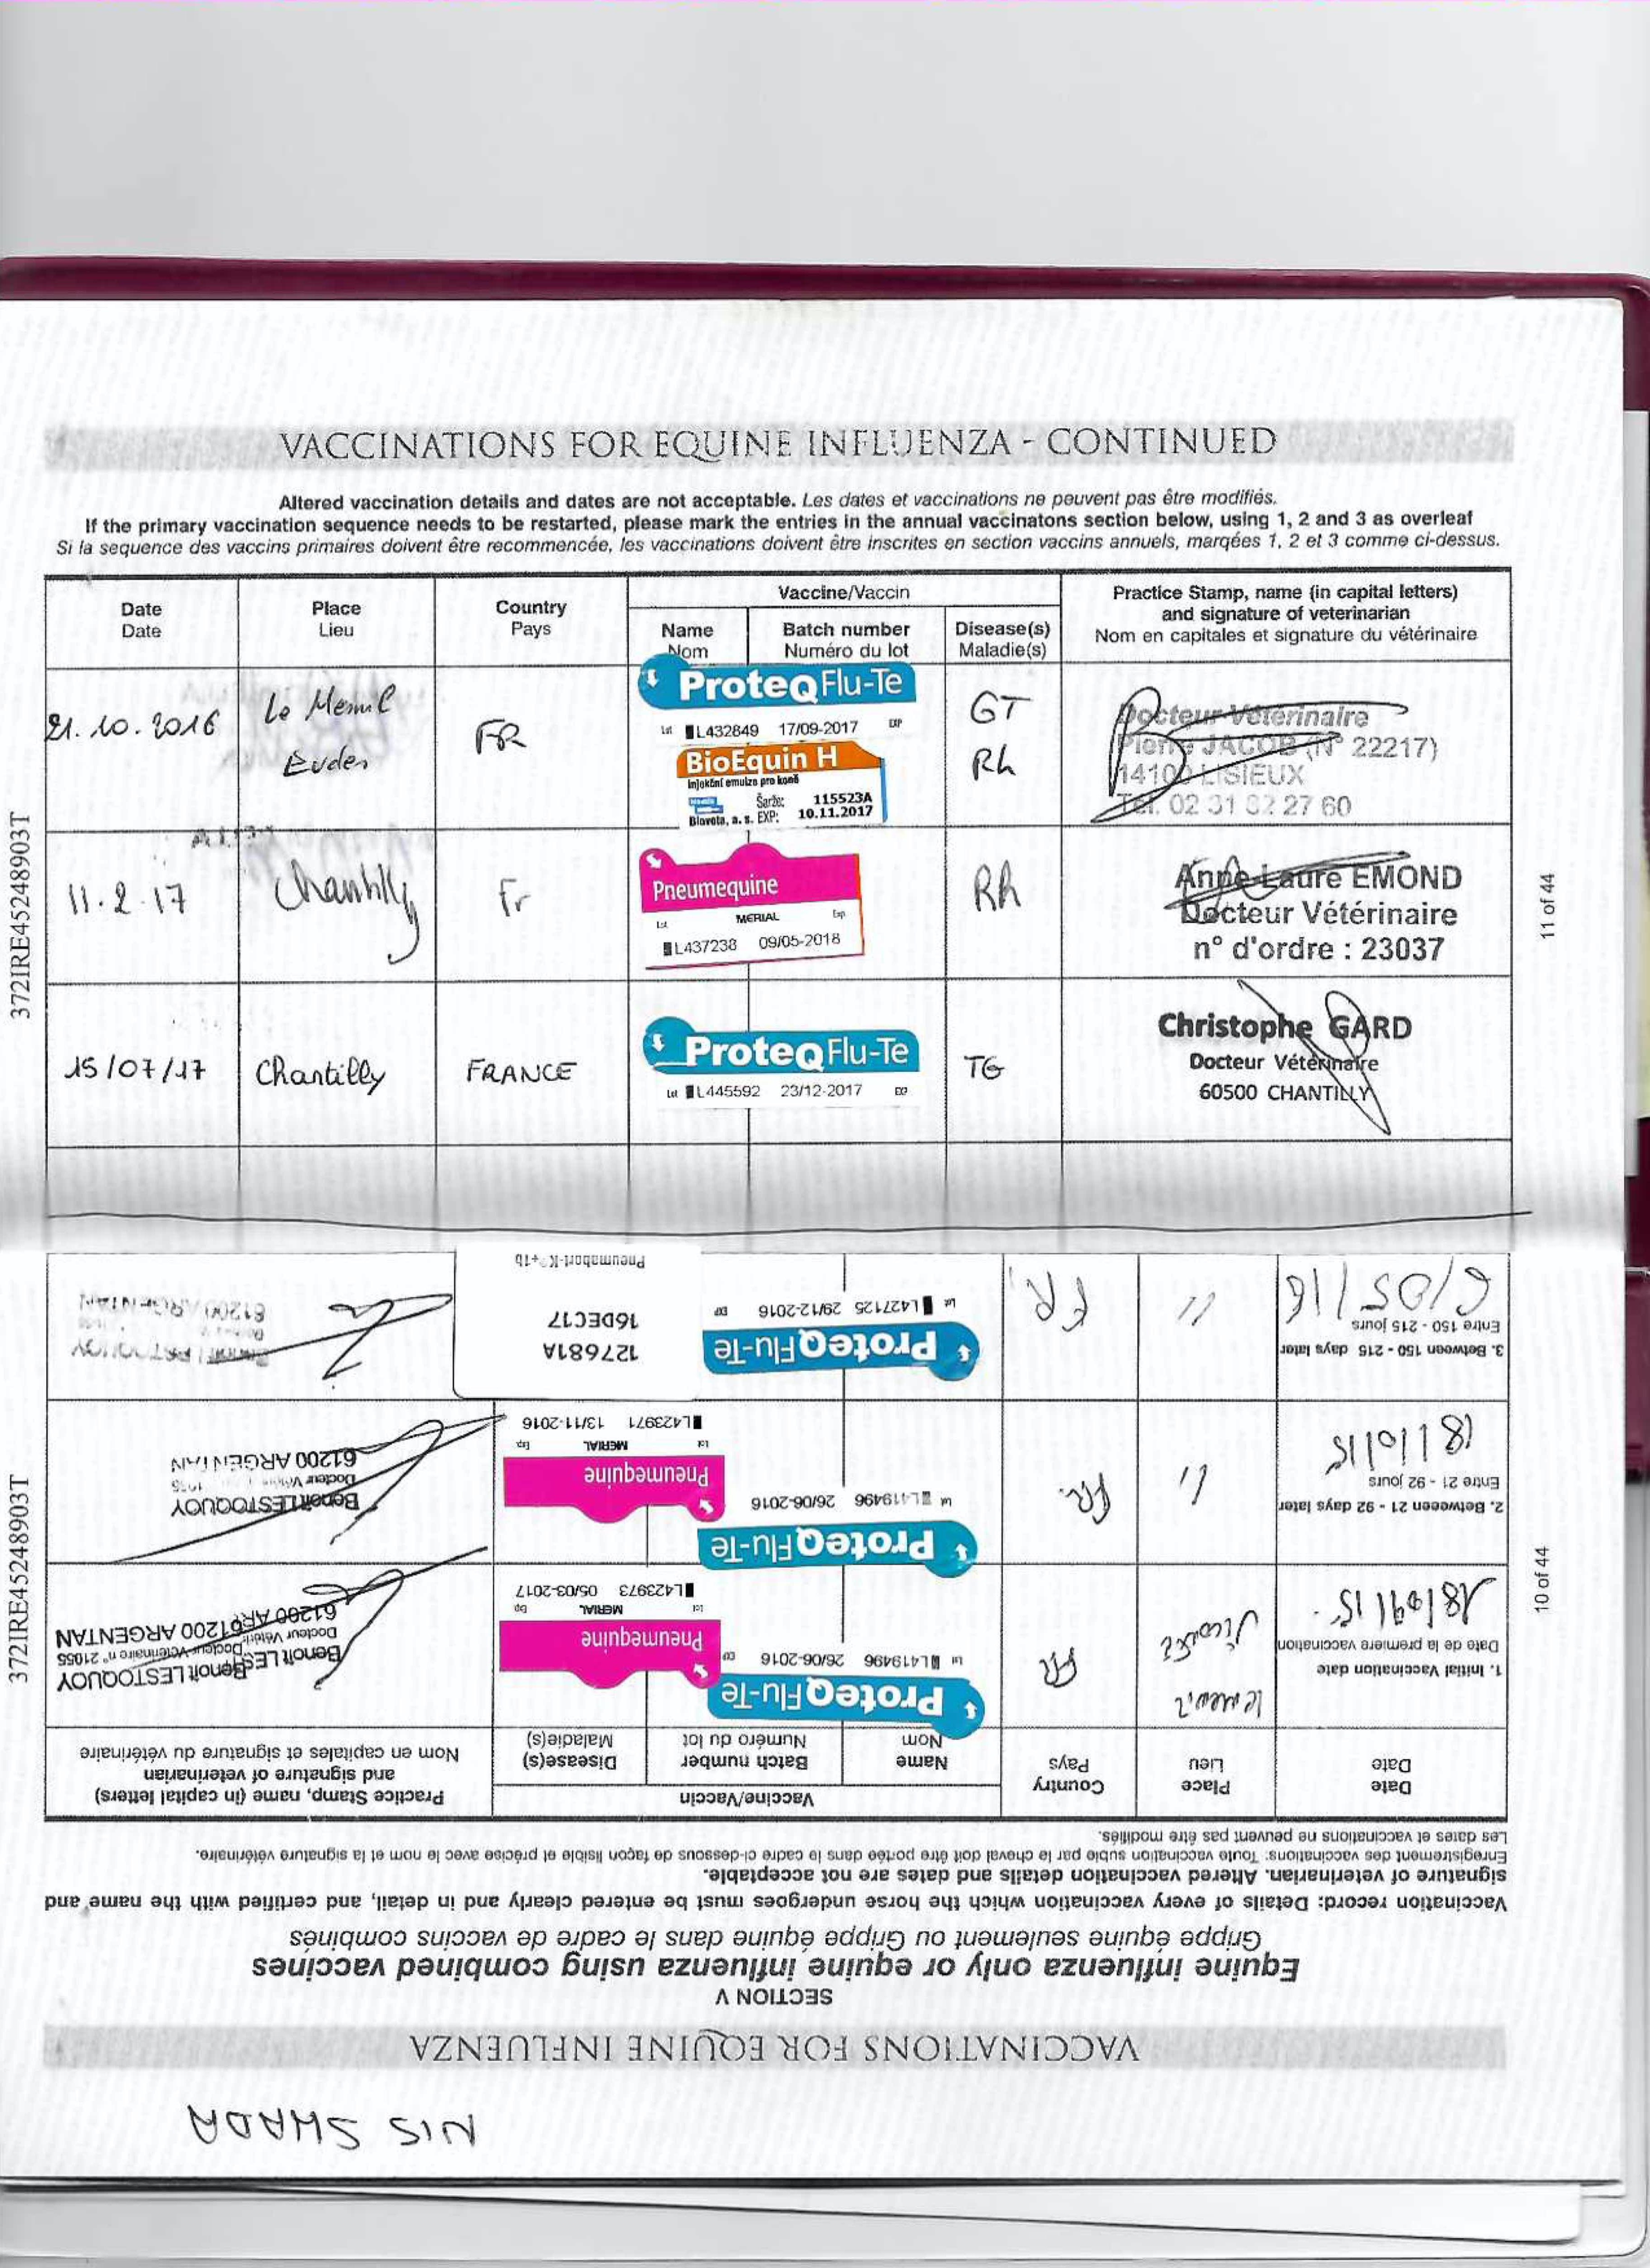 VACCINATIONS FOR EQUINE INFLUENZA - CONTINUED
Altered vaccination details and dates are not acceptable. Les dates et vaccinations ne peuvent pas être modifiés.
If the primary vaccination sequence needs to be restarted, please mark the entries in the annual vaccinatons section below, using 1, 2 and 3 as overleaf
Si la sequence des vaccins primaires doivent être recommencée, les vaccinations doivent être inscrites en section vaccins annuels, marqées 1, 2 et 3 comme ci-dessus.
Date
Date
Place
Lieu
Country
Pays
Vaccine/Vaccin
Name
Nom
Batch number
Numéro du lot
Disease(s)
Maladie(s)
Practice Stamp, name (in capital letters)
and signature of veterinarian
Nom en capitales et signature du vétérinaire
21.10.2016
Le Mesnil
Eudes
FR
ProteqFlu-Te
Lot L432849 17/09-2017 EXP
BioEquin H
injekční emulze pro koně
Šarže: 115523A
Bioveta, a. s. EXP: 10.11.2017
GT
Rh
Docteur Vétérinaire
Pierre JACOB (N° 22217)
14100 LISIEUX
Tél. 02 31 62 27 60
11.2.17
Chantilly
Fr
Pneumequine
MERIAL
Lot Exp
L437238 09/05-2018
Rh
Anne-Laure EMOND
Docteur Vétérinaire
n° d'ordre : 23037
15/07/17
Chantilly
FRANCE
ProteqFlu-Te
Lot L445592 23/12-2017 EXP
TG
Christophe GARD
Docteur Vétérinaire
60500 CHANTILLY
372IRE45248903T
11 of 44
NIS SHADA
VACCINATIONS FOR EQUINE INFLUENZA
SECTION V
Equine influenza only or equine influenza using combined vaccines
Grippe équine seulement ou Grippe équine dans le cadre de vaccins combinés
Vaccination record: Details of every vaccination which the horse undergoes must be entered clearly and in detail, and certified with the name and
signature of veterinarian. Altered vaccination details and dates are not acceptable.
Enregistrement des vaccinations: Toute vaccination subie par le cheval doit être portée dans le cadre ci-dessous de façon lisible et précise avec le nom et la signature vétérinaire.
Les dates et vaccinations ne peuvent pas être modifiés.
Date
Date
Place
Lieu
Country
Pays
Vaccine/Vaccin
Name
Nom
Batch number
Numéro du lot
Disease(s)
Maladie(s)
Practice Stamp, name (in capital letters)
and signature of veterinarian
Nom en capitales et signature du vétérinaire
1. Initial Vaccination date
Date de la premiere vaccination
18/09/15.
FR
ProteqFlu-Te
Lot L419496 26/06-2016 EXP
Pneumequine
MERIAL
Lot Exp
L423973 05/03-2017
Benoit LESTOQUOY
Docteur Vétérinaire n° 21055
61200 ARGENTAN
2. Between 21 - 92 days later
Entre 21 - 92 jours
18/10/15
11
FR.
ProteqFlu-Te
Lot L419496 26/06-2016
Pneumequine
MERIAL
Lot Exp
L423971 13/11-2016
Benoit LESTOQUOY
Docteur
61200 ARGENTAN
3. Between 150 - 215 days later
Entre 150 - 215 jours
6/05/16
11
FR.
ProteqFlu-Te
Lot L427125 29/12-2016 EXP
127681A
16DEC17
Pneumabort-K®+1b
61200 ARGENTAN
372IRE45248903T
10 of 44